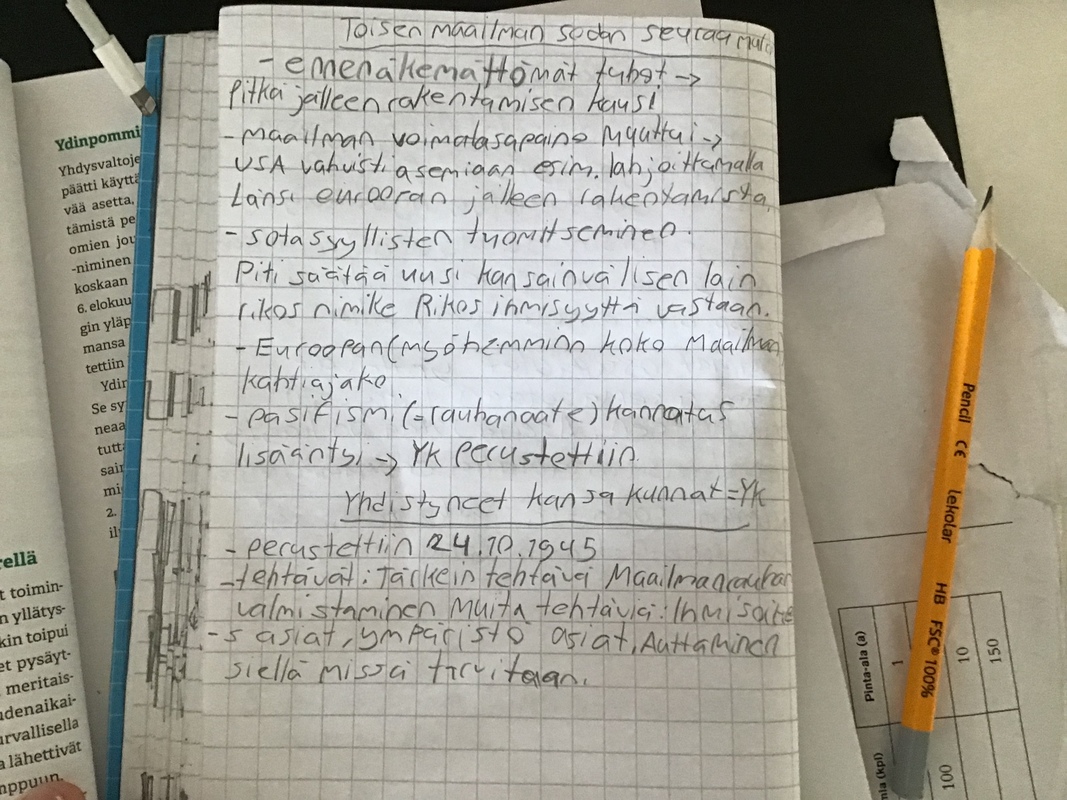 Toisen maailman sodan seuraamuta
- ennenäkemättömät tuhot →
Pitkä jälleenrakentamisen kausi
- maailman voimatasapaino muuttui →
USA vahvisti asemiaan esim. lahjoittamalla
Länsi euroopan jälleen rakentamista
- sotasyyllisten tuomitseminen.
Piti säätää uusi kansainvälisen lain
rikos nimike Rikos ihmisyyttä vastaan.
- Euroopan (myöhemminn koko Maailman
kahtiajako
- pasifismi (=rauhanaate) kannatus
lisääntyi → YK perustettiin
Yhdistyneet kansakunnat = YK
- perustettiin 24.10.1945
- tehtävät: Tärkein tehtävä Maailmanrauhan
valmistaminen Muita tehtäviä: Ihmisoike
-s asiat, ympäristö asiat, Auttaminen
siellä missä tarvitaan.
Ydinpommi
Yhdysvaltoje
päätti käyttä
vää asetta,
tämistä pe
omien jou
-niminen
koskaan
6. elokuu
gin yläp
mansa
tettiin
Ydir
Se sy
neaa
tutta
sair
mi
2.
il
rellä
t toimin-
n yllätys-
kin toipui
et pysäyt-
meritais-
udenaikai-
urvallisella
a lähettivät
mppuun.
Pencil CE lekolar HB FSC® 100%
Pinta-ala (a) 1 10 150
nla (kpl) 100